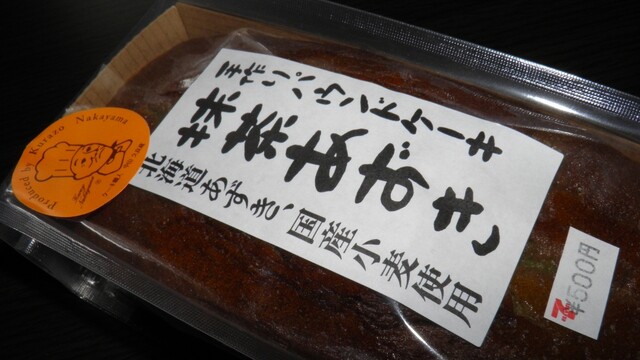 手作りパウンドケーキ
抹茶あずき
北海道あずき、国産小麦使用
Produced by Kurazo Nakayama
7
¥500円